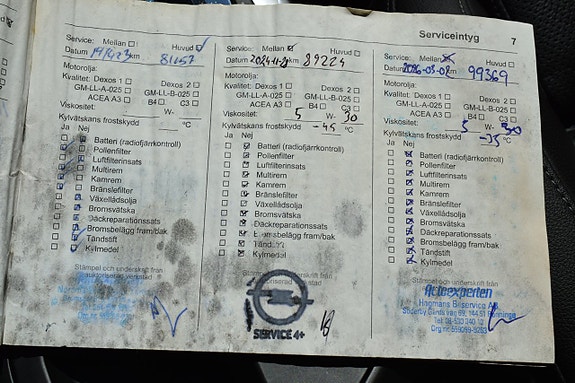 Serviceintyg 7
Service: Mellan Huvud
Datum km 81657
Motorolja:
Kvalitet: Dexos 1 Dexos 2
GM-LL-A-025 GM-LL-B-025
ACEA A3 B4 C3
Viskositet: W-
Kylvätskans frostskydd °C
Ja Nej
Batteri (radiofjärrkontroll)
Pollenfilter
Luftfilterinsats
Multirem
Kamrem
Bränslefilter
Växellådsolja
Bromsvätska
Däckreparationssats
Bromsbelägg fram/bak
Tändstift
Kylmedel
Stämpel och underskrift från
auktoriserad verkstad
Service: Mellan Huvud
Datum km 89224
Motorolja:
Kvalitet: Dexos 1 Dexos 2
GM-LL-A-025 GM-LL-B-025
ACEA A3 B4 C3
Viskositet: 5 W- 30
Kylvätskans frostskydd -45 °C
Ja Nej
Batteri (radiofjärrkontroll)
Pollenfilter
Luftfilterinsats
Multirem
Kamrem
Bränslefilter
Växellådsolja
Bromsvätska
Däckreparationssats
Bromsbelägg fram/bak
Kylmedel
Stämpel och underskrift från
SERVICE 4+
Service: Mellan Huvud
Datum km 99369
Motorolja:
Kvalitet: Dexos 1 Dexos 2
GM-LL-A-025 GM-LL-B-025
ACEA A3 B4 C3
Viskositet: 5 W- 30
Kylvätskans frostskydd -35 °C
Ja Nej
Batteri (radiofjärrkontroll)
Pollenfilter
Luftfilterinsats
Multirem
Kamrem
Bränslefilter
Växellådsolja
Bromsvätska
Däckreparationssats
Bromsbelägg fram/bak
Tändstift
Kylmedel
Stämpel och underskrift från
Autoexperten
Hagmans Bilservice AB